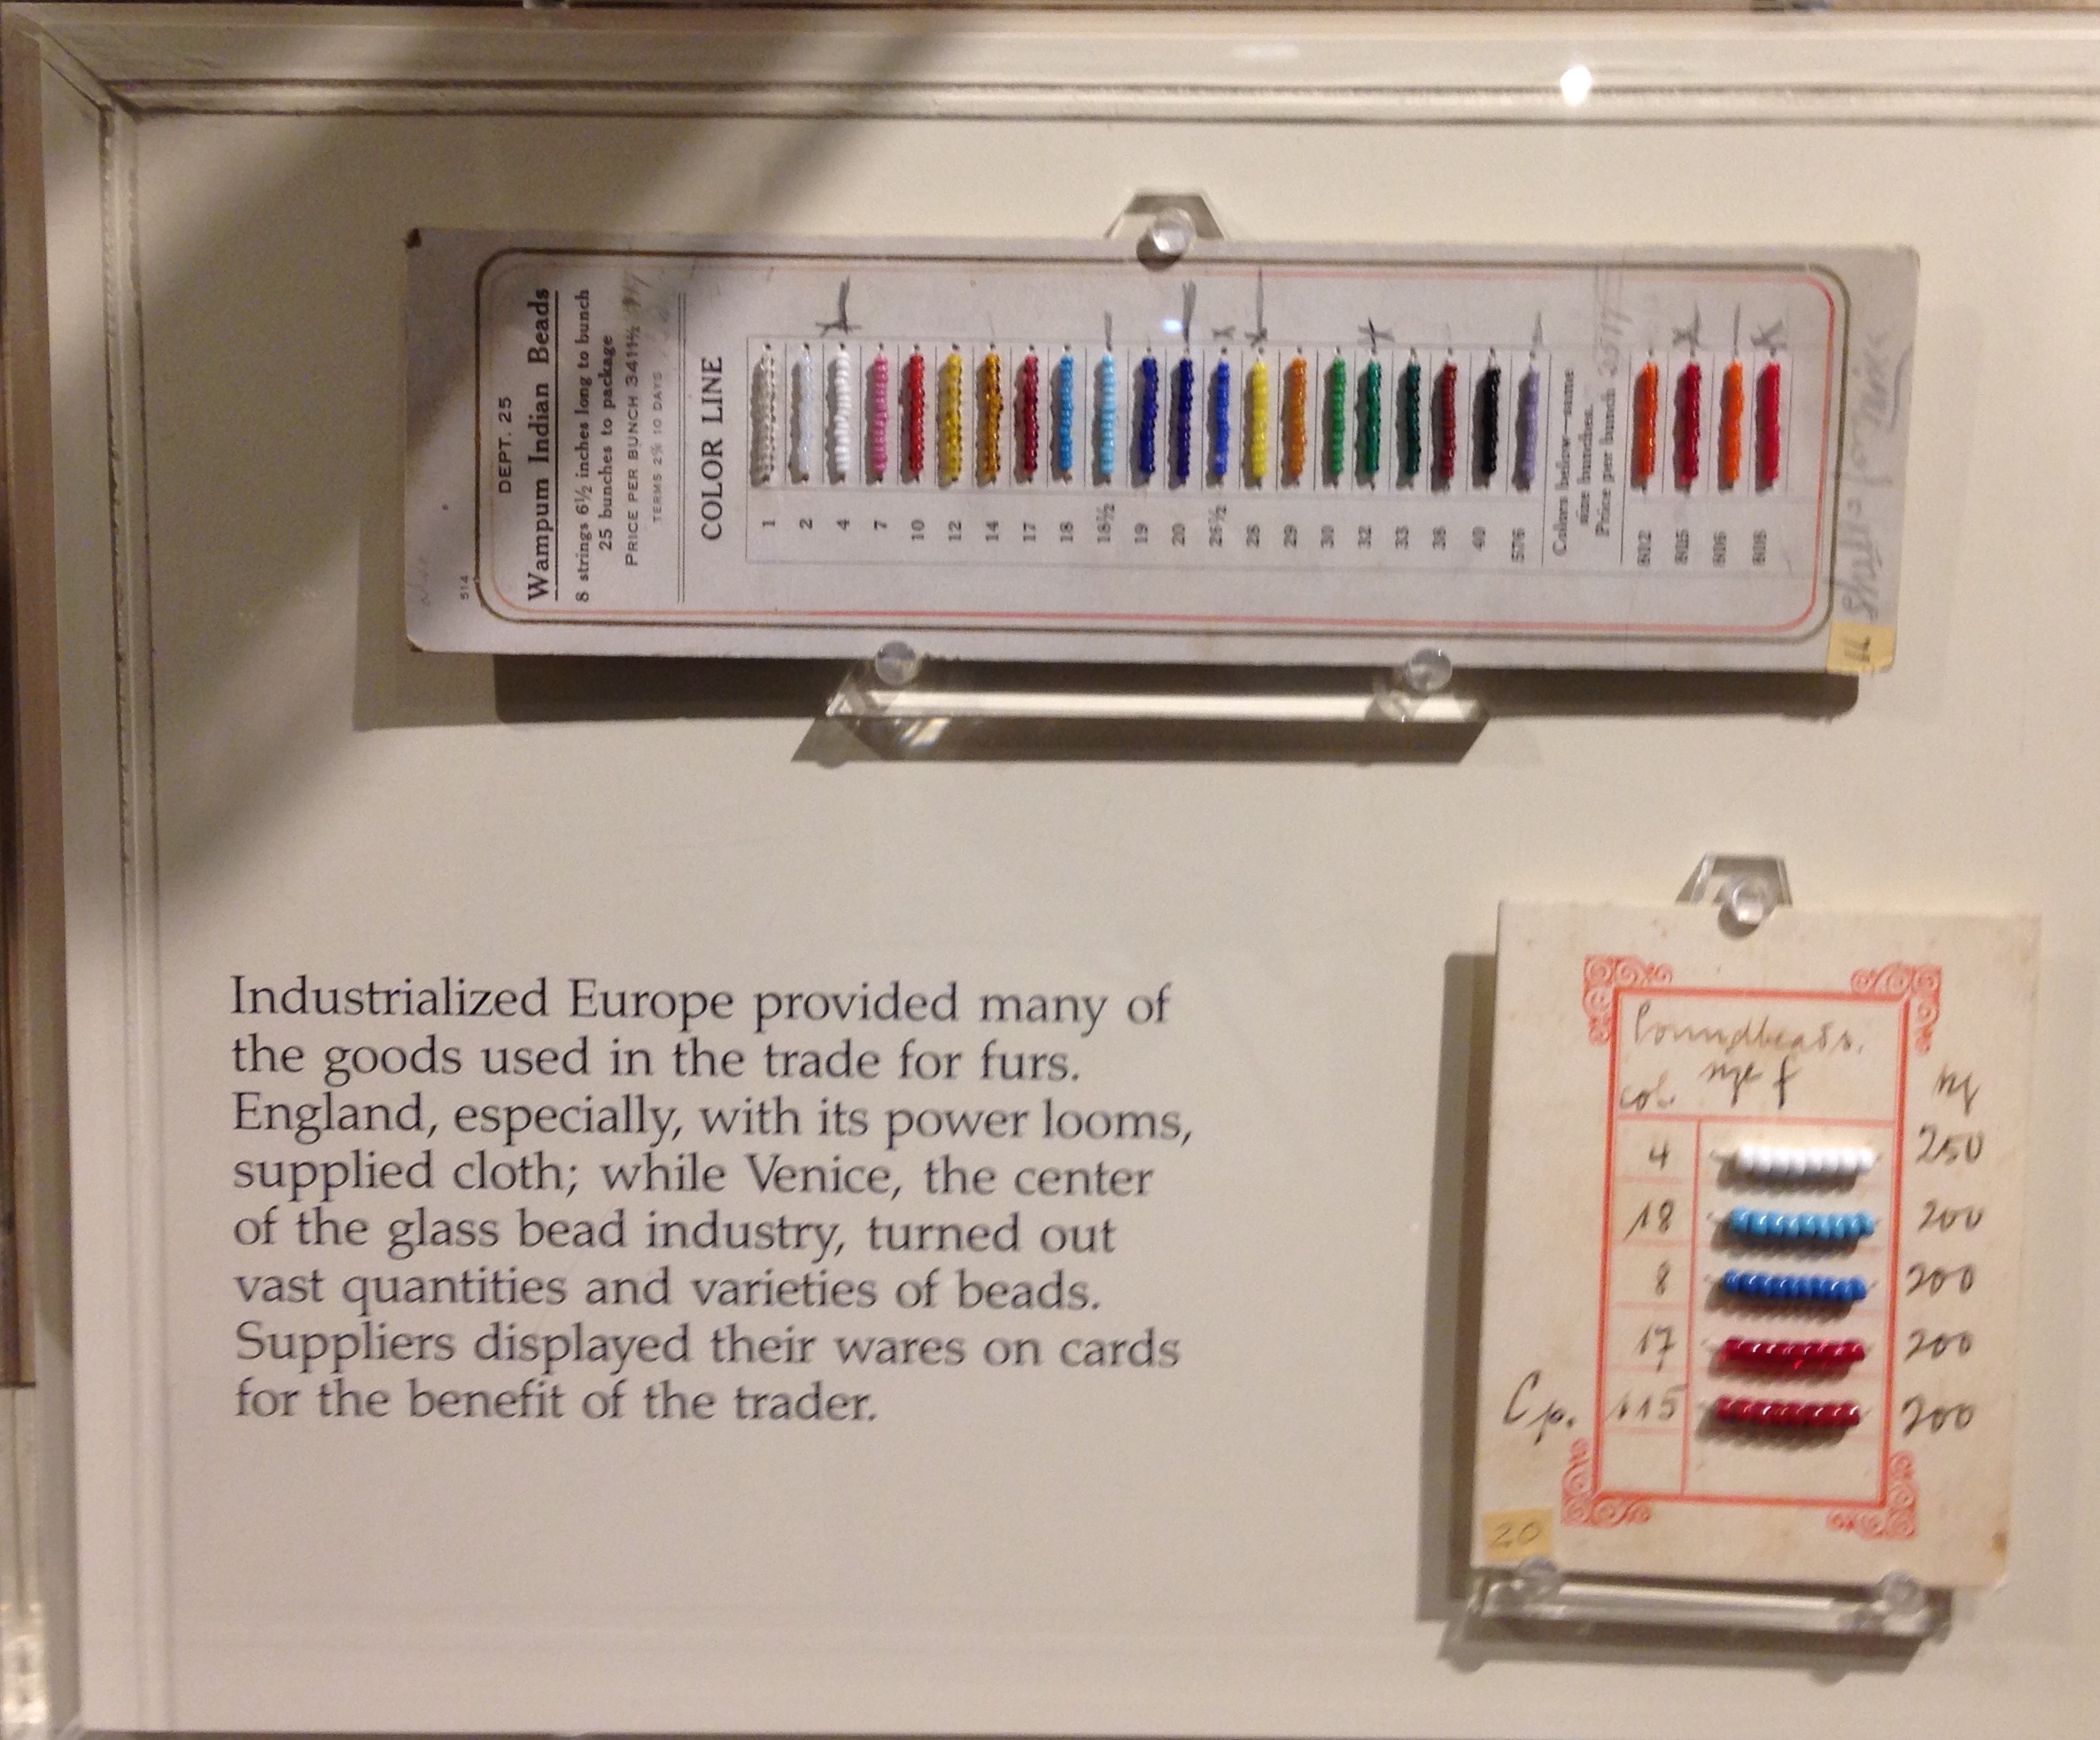 514
DEPT. 25
Wampum Indian Beads
8 strings 6½ inches long to bunch
25 bunches to package
PRICE PER BUNCH 3411½
TERMS 2% 10 DAYS
COLOR LINE
1
2
4
7
10
12
14
17
18
18½
19
20
26½
28
29
30
32
33
38
40
576
Colors below—same
size bunches.
Price per bunch
602
605
606
608
11
Industrialized Europe provided many of
the goods used in the trade for furs.
England, especially, with its power looms,
supplied cloth; while Venice, the center
of the glass bead industry, turned out
vast quantities and varieties of beads.
Suppliers displayed their wares on cards
for the benefit of the trader.
Poundbeads.
size f
col.
4 250
18 200
8 200
17 200
Cp. 115 200
20